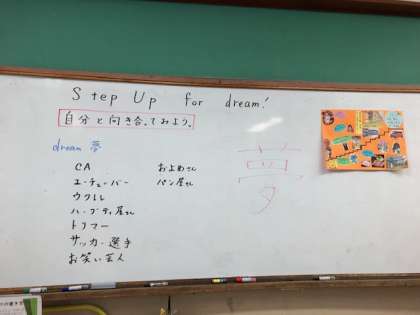 Step Up for dream!
自分と向き合ってみよう。
dream 夢
CA
ユーチューバー
ウクレレ
ハーブティ屋さん
トリマー
サッカー選手
お笑い芸人
およめさん
パン屋さん
夢